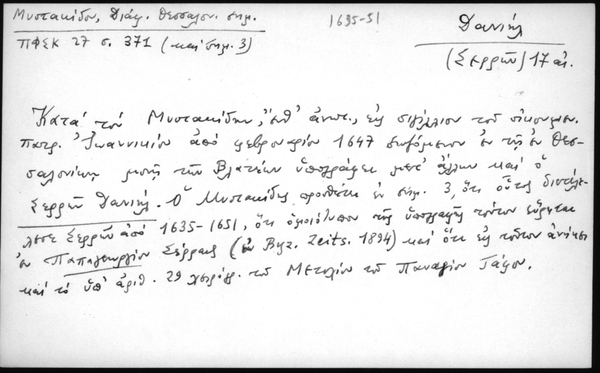 Μυστακίδου, Διάφ. Θεσσαλον. σημ.
1635-51
Δανιήλ
ΠΦΣΚ 27 σ. 371 (καὶ σημ. 3)
(Σερρῶν) 17 αἰ.
Κατὰ τὸν Μυστακίδην, ἔνθ' ἀνωτ., εἰς σιγίλλιον τοῦ οἰκουμεν.
πατρ. Ἰωαννικίου ἀπὸ φεβρουαρίου 1647 σωζόμενον ἐν τῇ ἐν Θεσ-
σαλονίκῃ μονῇ τῶν Βλατέων ὑπογράφει μετ' ἄλλων καὶ ὁ
Σερρῶν Δανιήλ. Ὁ Μυστακίδης προσθέτει ἐν σημ. 3, ὅτι οὗτος διετέλε-
λεσε Σερρῶν ἀπὸ 1635-1651, ὅτι ὁμοιότυπον τῆς ὑπογραφῆς τούτου εὕρηται
ἐν Παπαγεωργίου Σέρραις (ἐν Byz. Zeits. 1894) καὶ ὅτι εἰς τοῦτον ἀνήκει
καὶ τὸ ὑπ' ἀριθ. 29 χειρόγρ. τοῦ Μετοχίου τοῦ Παναγίου Τάφου.